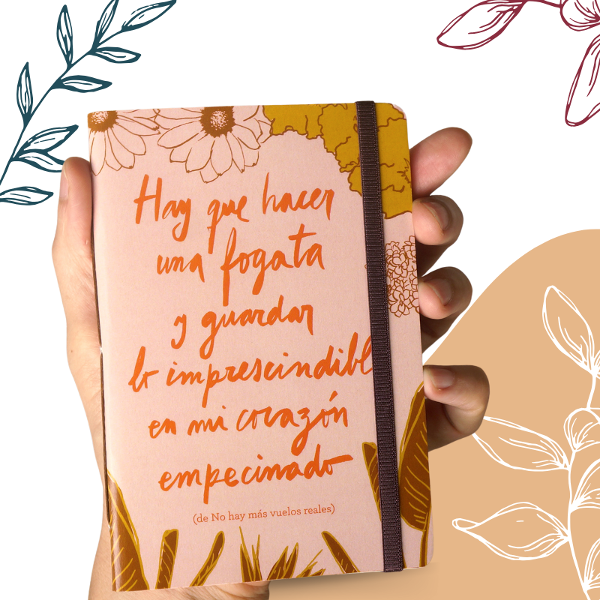 Hay que hacer
una fogata
y guardar
lo imprescindibl
en mi corazón
empecinado
(de No hay más vuelos reales)